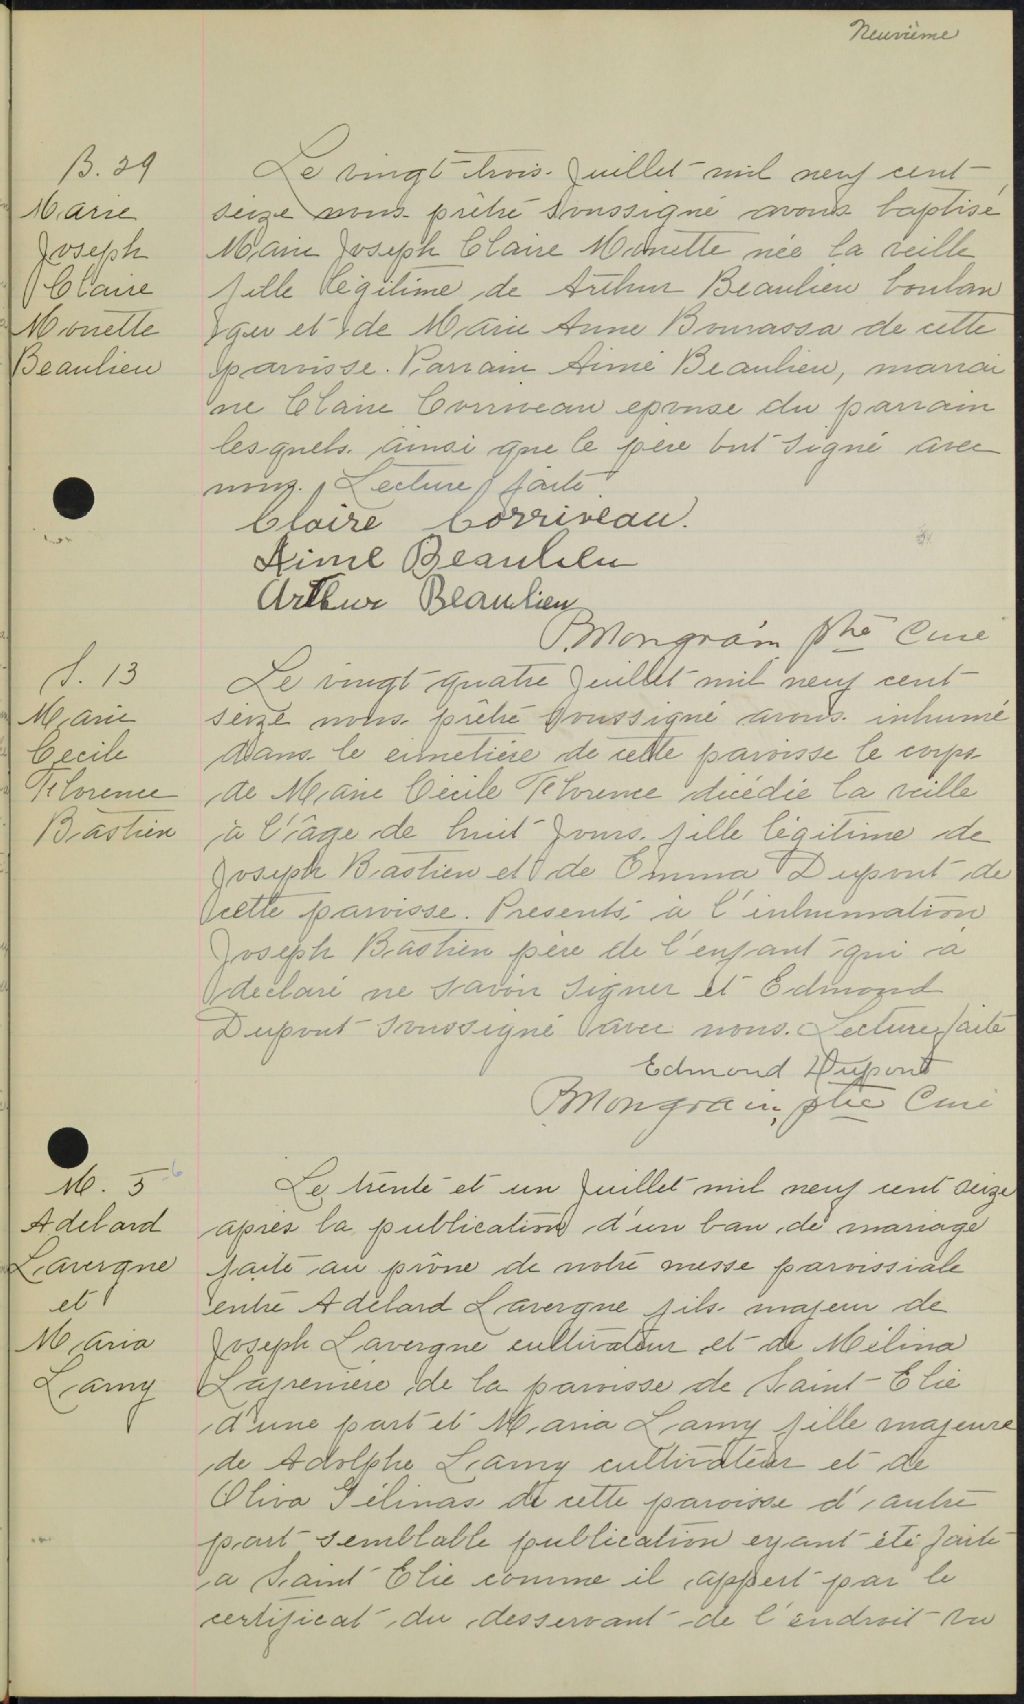 Neuvième
B. 29
Marie
Joseph
Claire
Monette
Beaulieu
Le vingt trois Juillet mil neuf cent
seize nous prêtre soussigné avons baptisé
Marie Joseph Claire Monette née la veille
fille légitime de Arthur Beaulieu boulan
ger et de Marie Anne Bourassa de cette
paroisse. Parrain Aimé Beaulieu, marrai
ne Claire Corriveau epouse du parrain
lesquels ainsi que le père ont signé avec
nous. Lecture faite
Claire Corriveau.
Aimé Beaulieu
Arthur Beaulieu
P. Mongrain ptre Curé
S. 13
Marie
Cecile
Florence
Bastien
Le vingt quatre Juillet mil neuf cent
seize nous prêtre soussigné avons inhumé
dans le cimetière de cette paroisse le corps
de Marie Cécile Florence décédée la veille
à l'âge de huit Jours fille légitime de
Joseph Bastien et de Emma Dupont de
cette paroisse. Presents à l'inhumation
Joseph Bastien père de l'enfant qui a
declaré ne savoir signer et Edmond
Dupont soussigné avec nous. Lecture faite
Edmond Dupont
P. Mongrain, ptre Curé
M. 5 -6
Adelard
Lavergne
et
Maria
Lamy
Le trente et un Juillet mil neuf cent seize
après la publication d'un ban de mariage
faite au prône de notre messe paroissiale
entre Adelard Lavergne fils majeur de
Joseph Lavergne cultivateur et de Mélina
Lafrenière de la paroisse de Saint-Elie
d'une part et Maria Lamy fille majeure
de Adolphe Lamy cultivateur et de
Oliva Gélinas de cette paroisse d'autre
part semblable publication eyant été faite
a Saint Elie comme il appert par le
certificat du desservant de l'endroit vu